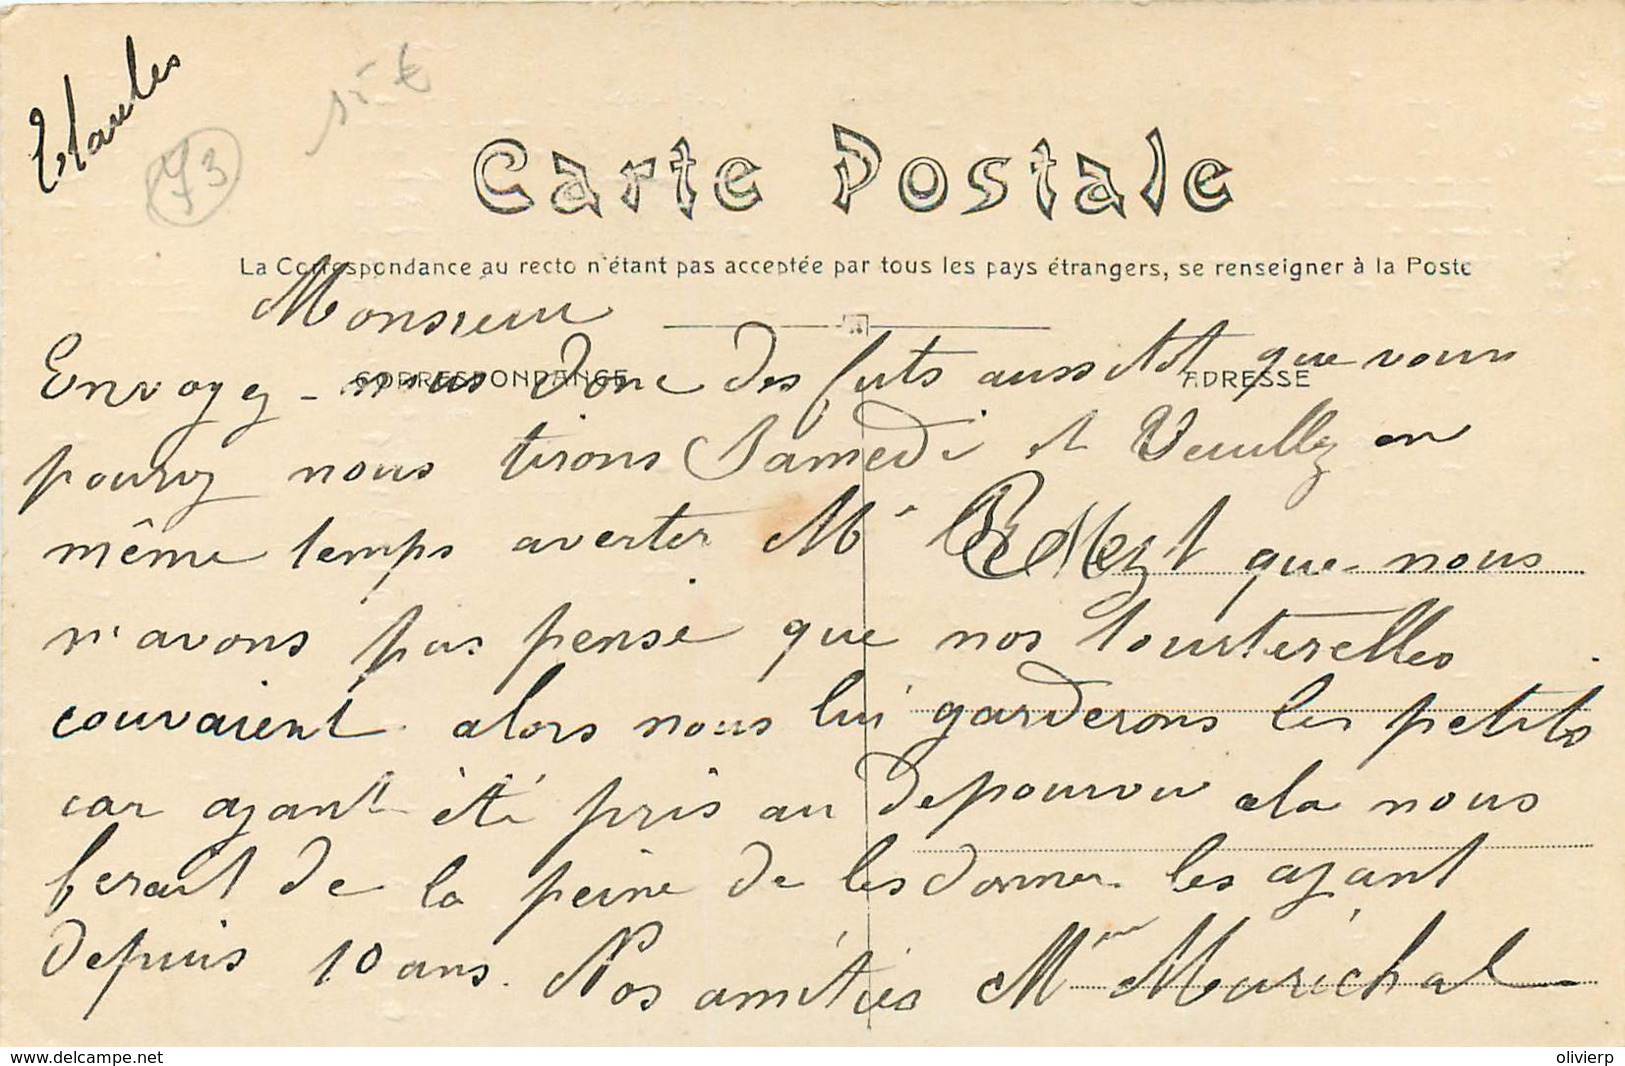 Etaules
73
15 €
Carte Postale
La Correspondance au recto n'étant pas acceptée par tous les pays étrangers, se renseigner à la Poste
Monsieur
CORRESPONDANCE
ADRESSE
Envoyez-nous donc des futs aussitot que vous
pourez nous tirons Samedi et Veuillez en
même temps averter Mr que nous
n'avons pas pensé que nos tourterelles
couvaient alors nous lui garderons les petits
car ayant été pris au depourvu cela nous
ferait de la peine de les donner les ayant
depuis 10 ans. Nos amitiés Mme Marichal
www.delcampe.net
olivierp